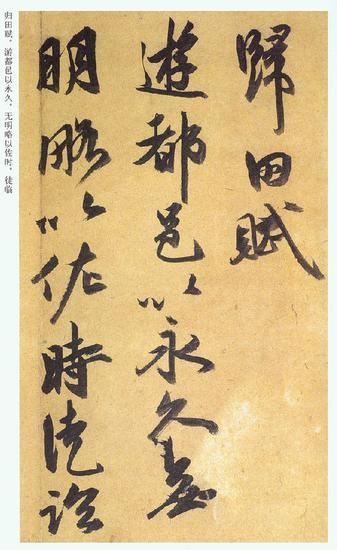 歸田賦
遊都邑以永久無
明略以佐時徒臨
归田赋，游都邑以永久，无明略以佐时，徒临